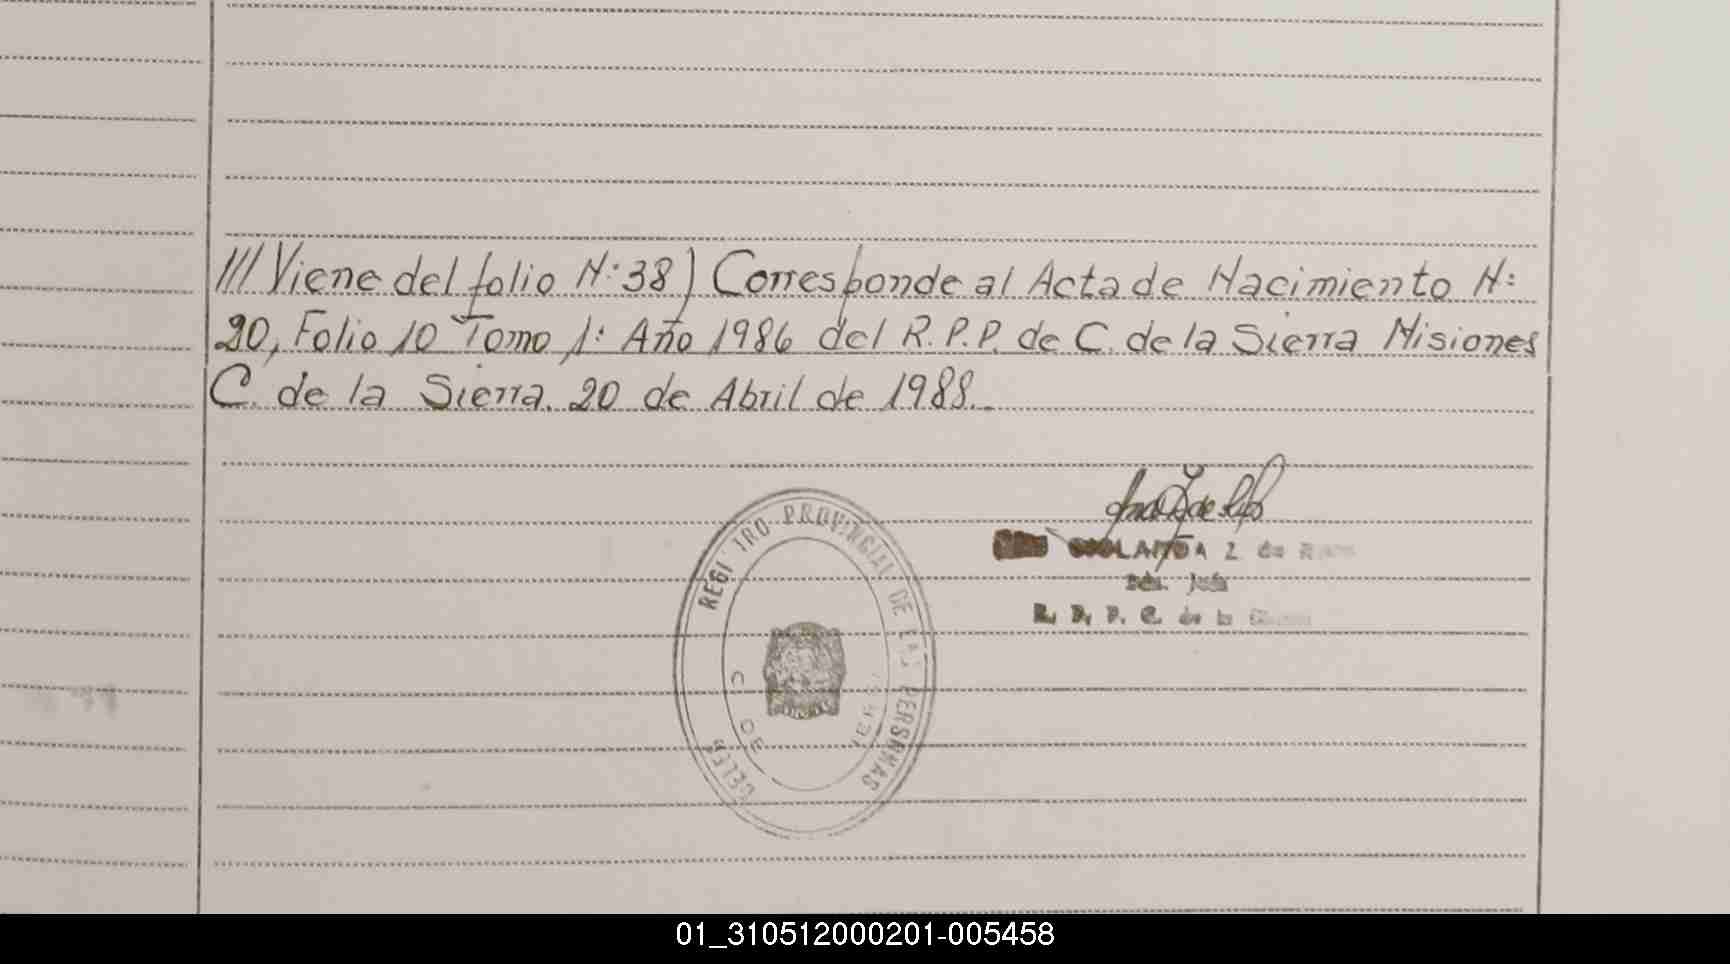 /// Viene del folio N: 38) Corresponde al Acta de Nacimiento N:
20, Folio 10 Tomo 1: Año 1986 del R.P.P. de C. de la Sierra Misiones
C. de la Sierra. 20 de Abril de 1988.
REGI TRO PROVINCIAL DE LAS PERSONAS
C DE
DELEG
L de
R. P. P. C. de la
01_310512000201-005458